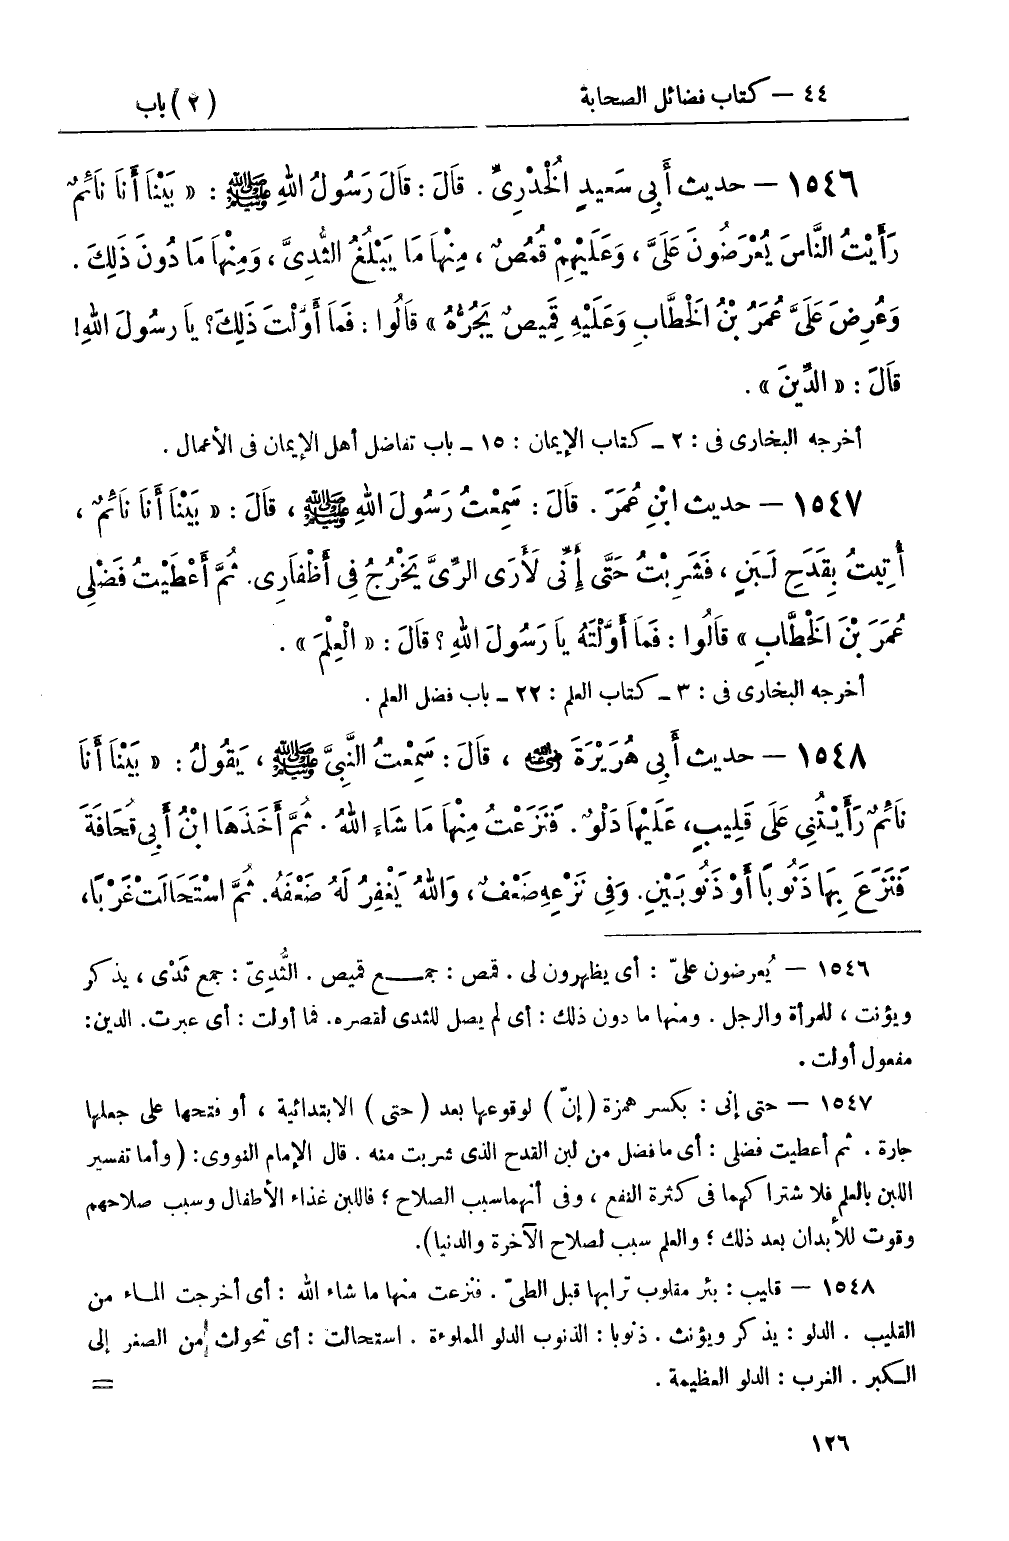 ٤٤ – كتاب فضائل الصحابة (٢) باب
١٥٤٦ – حديث أَبِي سَعيدٍ الْخُدْرِىِّ . قَالَ : قَالَ رَسُولُ اللهِ ﷺ : « بَيْنَا أَنَا نَائمٌ
رَأَيْتُ النَّاسَ يُعْرَضُونَ عَلَىَّ ، وَعَلَيْهِمْ قُمُصٌ ، مِنْهَا مَا يَبْلُغُ الثُّدِىَّ ، وَمِنْهَا مَا دُونَ ذَلِكَ .
وَعُرِضَ عَلَىَّ عُمَرُ بْنُ الْخَطَّابِ وَعَلَيْهِ قَمِيصٌ يَجُرُّهُ » قَالُوا : فَمَا أَوَّلْتَ ذَلِكَ؟ يَا رسُولَ اللهِ!
قَالَ : « الدِّينَ » .
أخرجه البخارى فى : ٢ ـ كتاب الإيمان : ١٥ ـ باب تفاضل أهل الإيمان فى الأعمال .
١٥٤٧ – حديث ابْنِ عُمَرَ . قَالَ : سَمِعْتُ رَسُولَ اللهِ ﷺ ، قَالَ : « بَيْنَا أَنَا نَائمٌ ،
أُتِيتُ بِقَدَحِ لَبَنٍ ، فَشَرِبْتُ حَتَّى إِنِّى لَأَرَى الرِّىَّ يَخْرُجُ فِى أَظْفَارِى. ثُمَّ أَعْطَيْتُ فَضْلِى
عُمَرَ بْنَ الْخَطَّابِ » قَالُوا : فَمَا أَوَّلْتَهُ يَا رَسُولَ اللهِ ؟ قَالَ : « الْعِلْمَ » .
أخرجه البخارى فى : ٣ ـ كتاب العلم : ٢٢ ـ باب فضل العلم .
١٥٤٨ – حديث أَبِي هُرَيْرَةَ رضي الله عنه ، قَالَ : سَمِعْتُ النَّبِىَّ ﷺ ، يَقُولُ : « بَيْنَا أَنَا
نَائمٌ رَأَيْتُنِى عَلَى قَلِيبٍ، عَلَيْهَا دَلْوٌ . فَنَزَعْتُ مِنْهَا مَا شَاءَ اللهُ . ثُمَّ أَخَذَهَا ابْنُ أَبِي قُحَافَةَ
فَنَزَعَ بِهَا ذَنُوبًا أَوْ ذَنُوبَيْنِ. وَفِى نَزْعِهِ ضَعْفٌ، وَاللهُ يَغْفِرُ لَهُ ضَعْفَهُ. ثُمَّ اسْتَحَالَتْ غَرْبًا،
١٥٤٦ – يُعرضون علىّ : أى يظهرون لى . قمص : جمـــع قميص . الثُّدِىّ : جمع ثَدْى ، يذكر
ويؤنث ، للمرأة والرجل . ومنها ما دون ذلك : أى لم يصل للثدى لقصره. فما أولت : أى عبرت. الدين:
مفعول أولت .
١٥٤٧ – حتى إنى : بكسر همزة (إنّ) لوقوعها بعد (حتى) الابتدائية ، أو فتحها على جعلها
جارة . ثم أعطيت فضلى : أى ما فضل من لبن القدح الذى شربت منه . قال الإمام النووى: (وأما تفسير
اللبن بالعلم فلاشتراكهما فى كثرة النفع ، وفى أنهما سبب الصلاح ؛ فاللبن غذاء الأطفال وسبب صلاحهم
وقوت للأبدان بعد ذلك ؛ والعلم سبب لصلاح الآخرة والدنيا).
١٥٤٨ – قليب : بئر مقلوب ترابها قبل الطىّ . فنزعت منها ما شاء الله : أى أخرجت المـاء من
القليب . الدلو : يذكر ويؤنث . ذنوبا : الذنوب الدلو المملوءة . استحالت : أى تحولت من الصغر إلى
الـكبر . الغرب : الدلو العظيمة . =
١٢٦